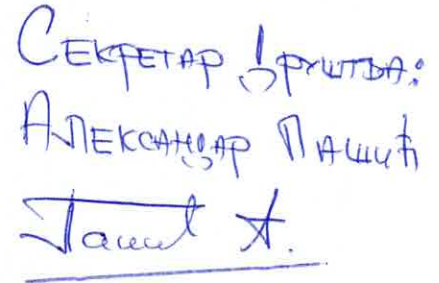 Секретар Друштва:
Александар Пашић
Пашић А.